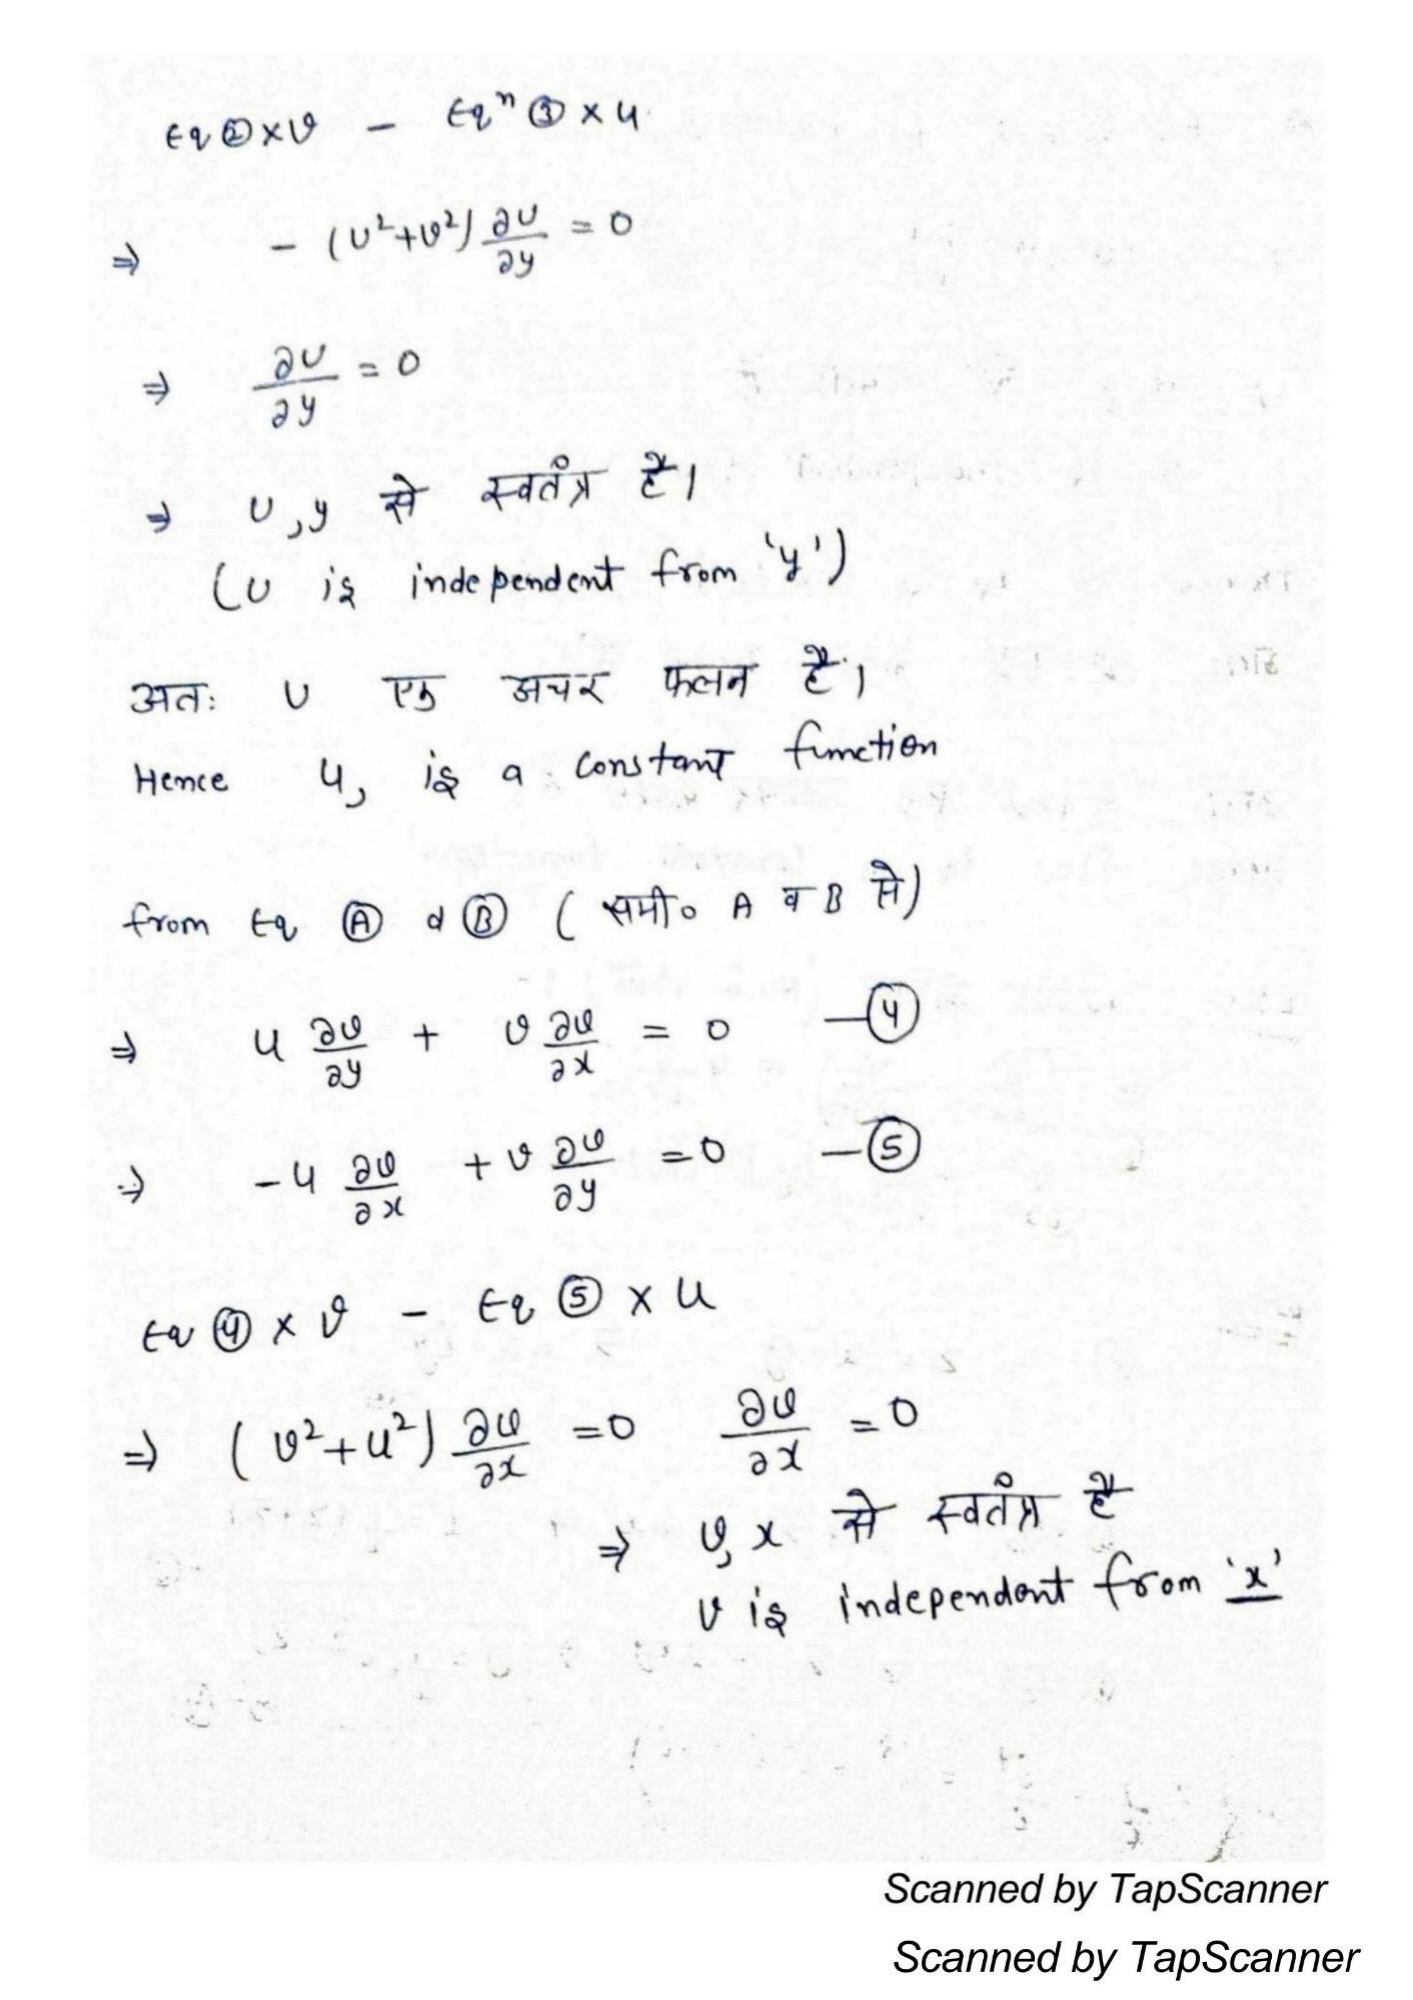 Eq ② × v − Eqⁿ ③ × u
⇒ − (u² + v²) ∂u/∂y = 0
⇒ ∂u/∂y = 0
⇒ u, y से स्वतंत्र है।
(u is independent from 'y')
अतः u एक अचर फलन है।
Hence u, is a constant function
from Eq Ⓐ व Ⓑ ( समी० A व B से)
⇒ u ∂v/∂y + v ∂v/∂x = 0 —④
⇒ −u ∂v/∂x + v ∂v/∂y = 0 —⑤
Eq ④ × v − Eq ⑤ × u
⇒ ( v² + u² ) ∂v/∂x = 0 ∂v/∂x = 0
⇒ v, x से स्वतंत्र है
v is independent from 'x'
Scanned by TapScanner
Scanned by TapScanner